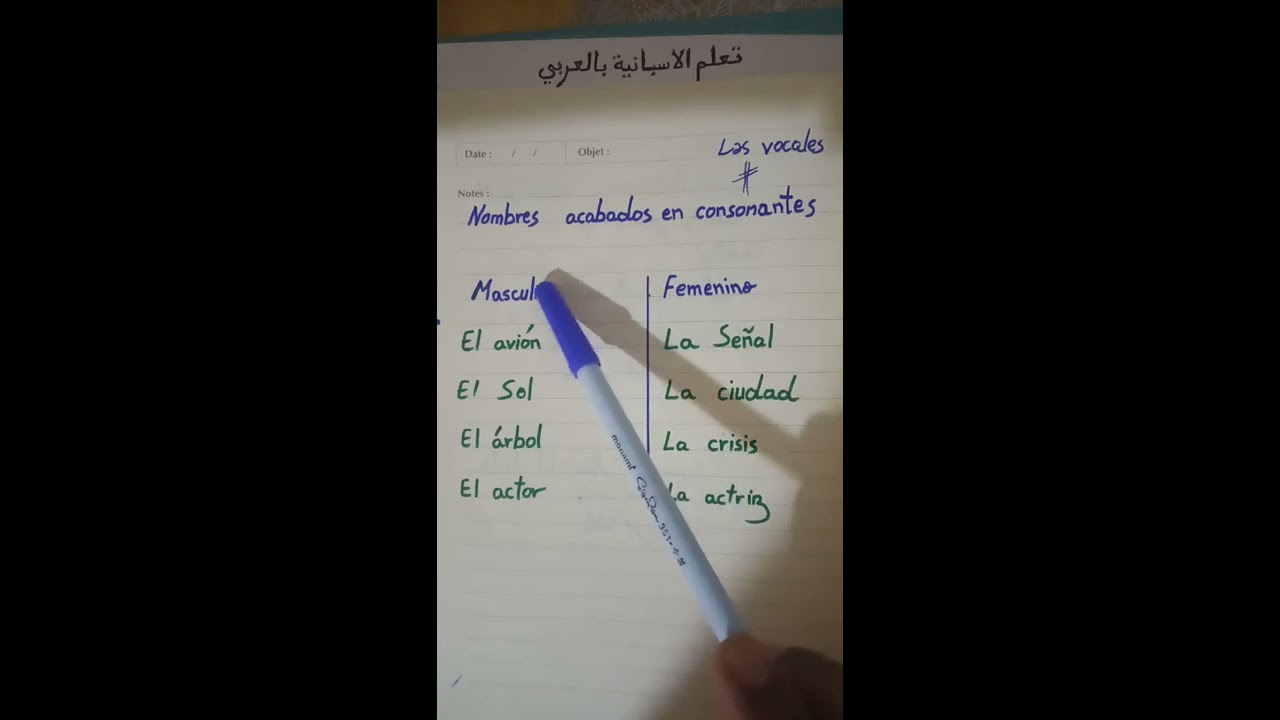 تعلم الاسبانية بالعربي
Date : / / Objet :
Las vocales
≠
Notes :
Nombres acabados en consonantes
Mascul Femenino
El avión La Señal
El Sol La ciudad
El árbol La crisis
El actor La actriz
monami 351